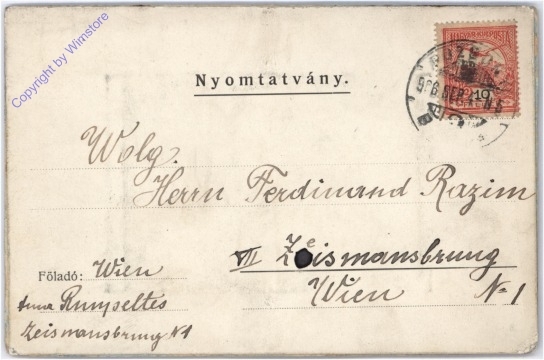 Copyright by Wimstore
MAGYAR KIR. POSTA
10
Nyomtatvány.
Wolg.
Herrn Ferdinand Razim
VII Zeismansbrung
Wien № 1
Föladó: Wien
Anna Rumpeltes
Zeismansbrung №1